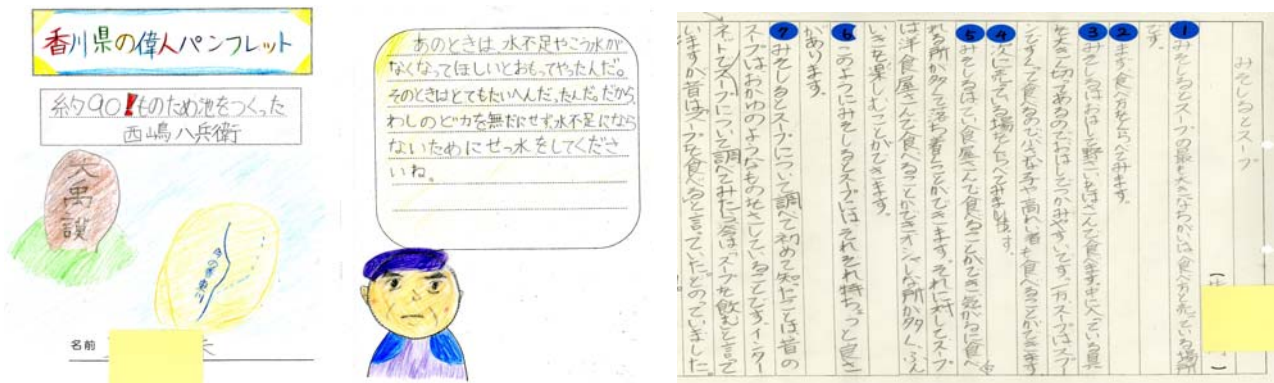 香川県の偉人パンフレット
約90!ものため池をつくった
西嶋八兵衛
大禹謨
今の香東川
名前
あのときは、水不足やこう水が
なくなってほしいとおもってやったんだ。
そのときはとてもたいへんだったんだ。だから、
わしのどカを無だにせず、水不足になら
ないためにせっ水をしてくださ
いね。
みそしるとスープ
1 みそしるとスープの最も大きなちがいは食べ方と売っている場所
です。
2 まず食べ方をくらべてみます。
3 みそしるはおはしで野さいをはさんで食べます。中に入っている具
を大きく切ってあるのでおはしでつかみやすいです。一方スープはスプー
ンですくって食べるので小さな子や高れい者も食べることができます。
4 次に売っている場をくらべてみます。
5 みそしるはてい食屋さんで食べることができ気がるに食べ
れる所が多くて落ち着くことができます。それに対してスープ
は洋食屋さんで食べることができオシャレな所が多く、ふん
いきを楽しむことができます。
6 このようにみそしるとスープには、それぞれ特ちょうと良さ
があります。
7 みそしるとスープについて調べて初めて知ったことは昔の
スープはおかゆのようなものをさしていることです。インター
ネットでスープについて調べてみたら今は「スープを飲む」と言って
いますが昔は「スープを食べる」と言っていたとのっていました。